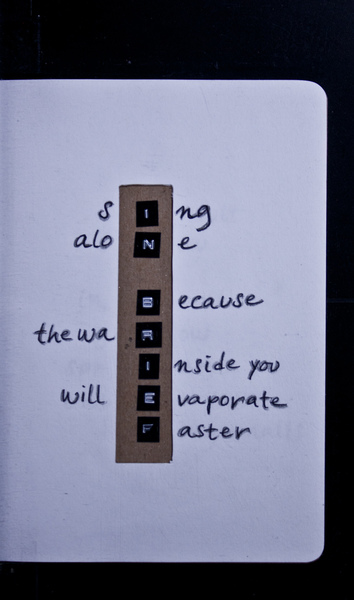 sIng
aloNe
Because
the waR
Inside you
will Evaporate
Faster